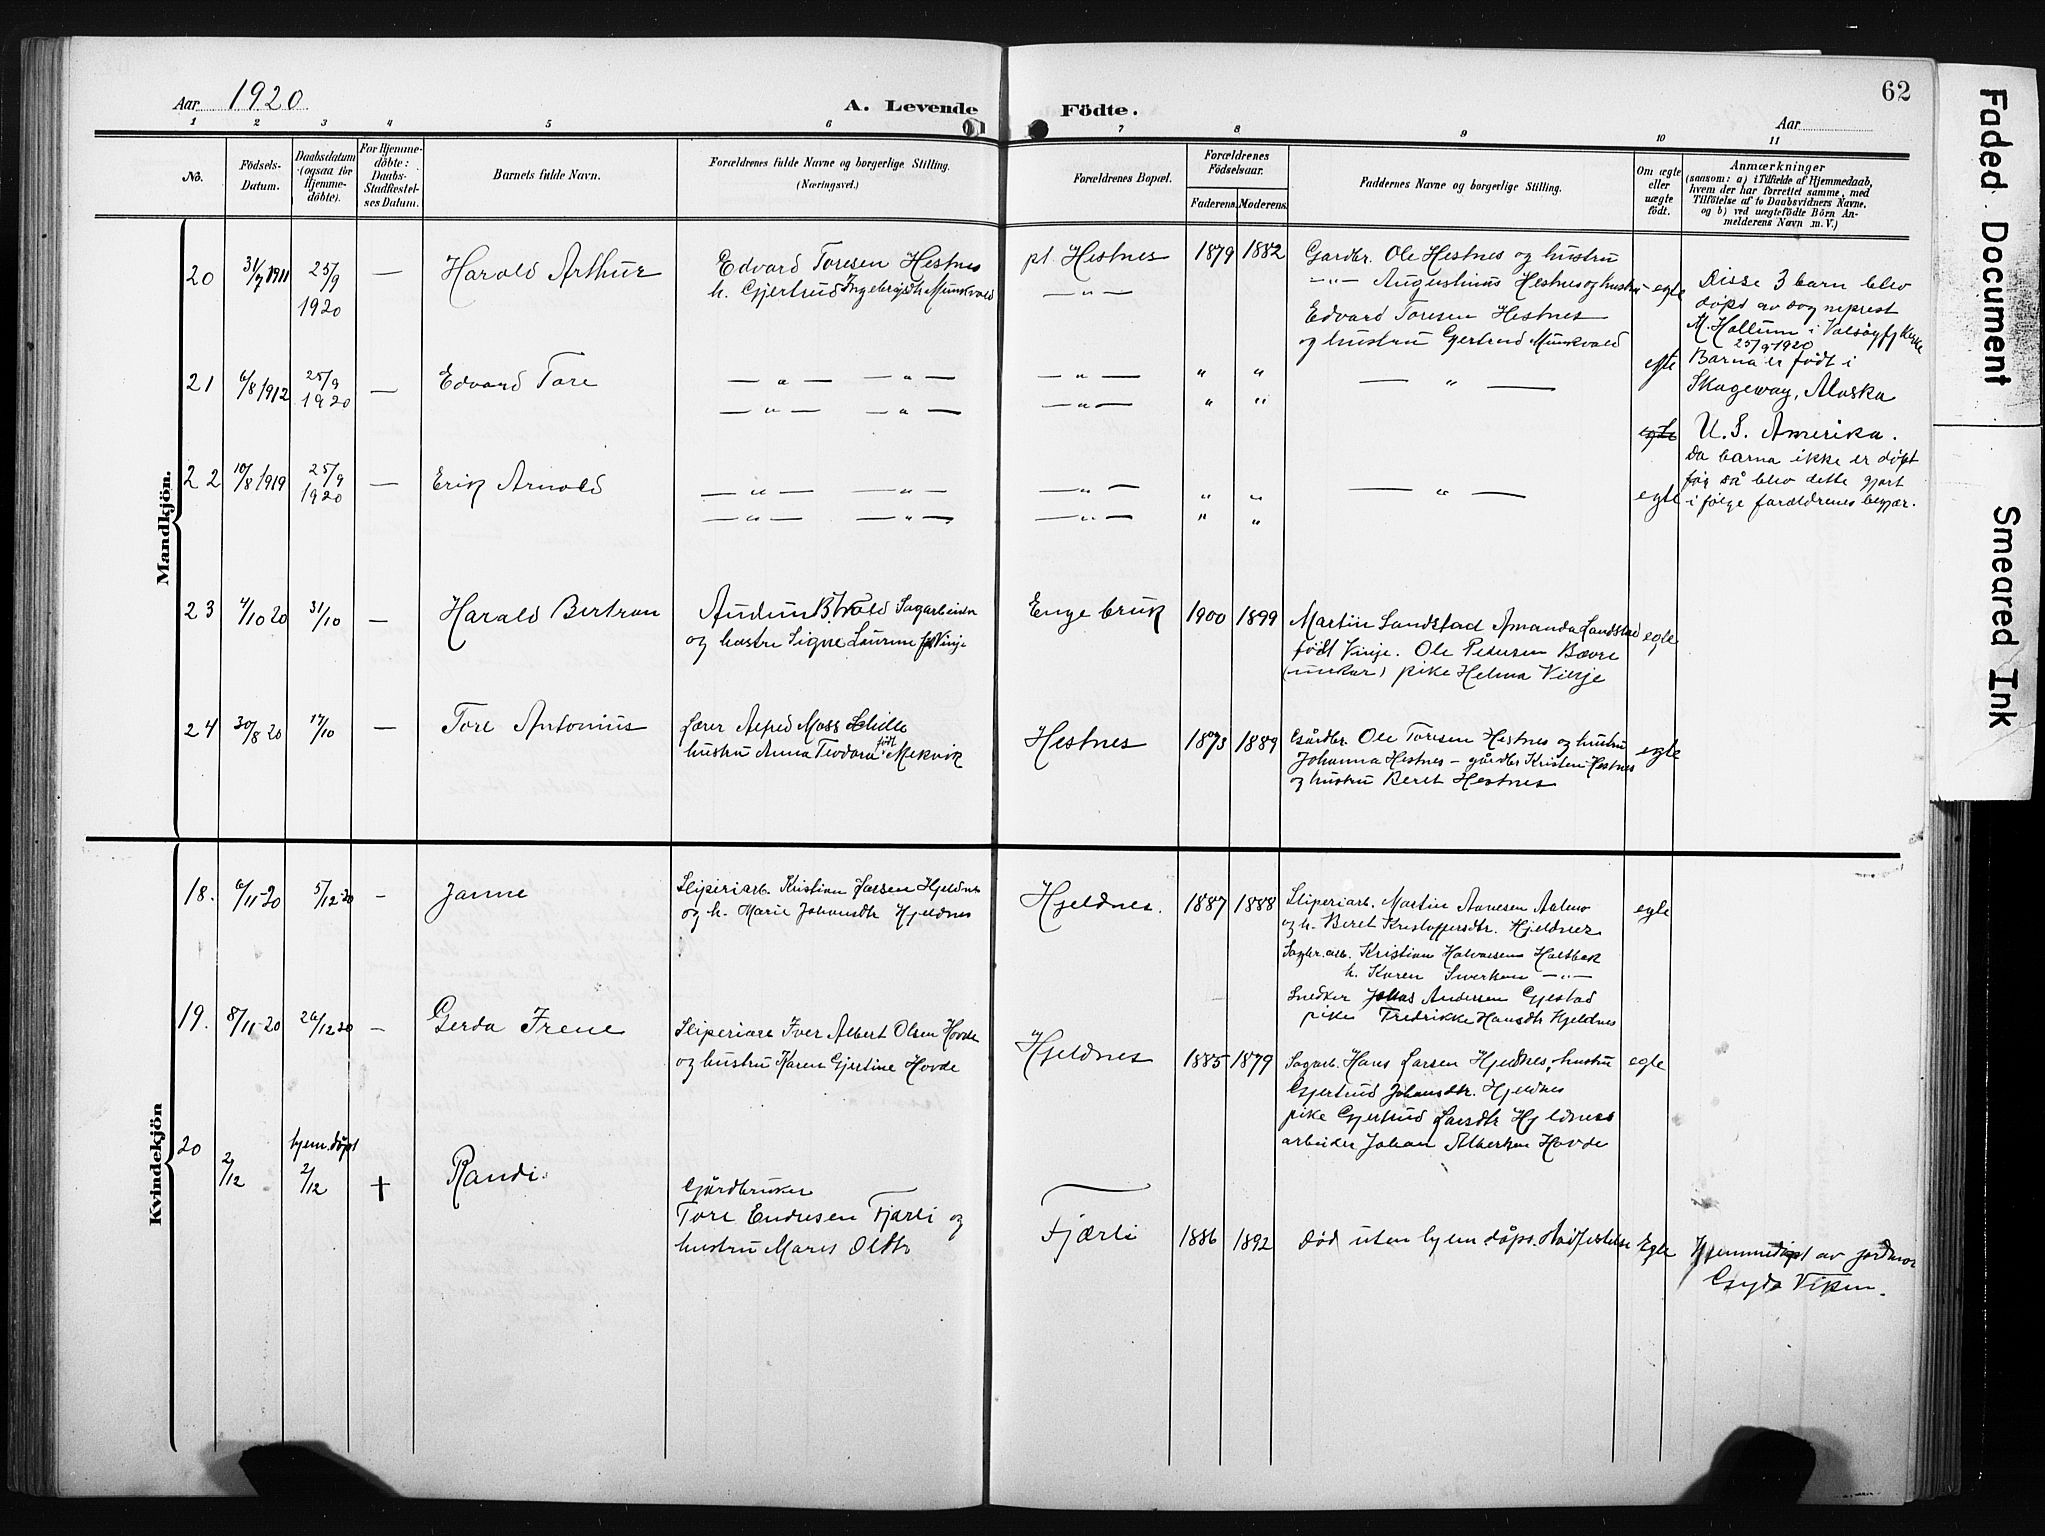 62
Aar 1920
A. Levende Födte.
Aar
1 2 3 4 5 6 7 8 9 10 11
No.
Födsels-Datum.
Daabsdatum (ogsaa for Hjemmedöbte).
For Hjemmedöbte: Daabs-Stadfæstelses Datum.
Barnets fulde Navn.
Forældrenes fulde Navne og borgerlige Stilling. (Næringsvei.)
Forældrenes Bopæl.
Forældrenes Födselsaar.
Faderens. Moderens.
Faddernes Navne og borgerlige Stilling.
Om ægte eller uægte födt.
Anmærkninger
(saasom: a) i Tilfælde af Hjemmedaab,
hvem der har forrettet samme, med
Tilföielse af to Daabsvidners Navne,
og b) ved uægtefödte Börn Anmelderens Navn m. V.)
Mandkjön.
20 31/7 1911 25/9 1920 — Harald Arthur
Edvard Toresen Hestnes
h. Gjertrud Ingebrigtsdtr Munkvold
pt. Hestnes
— „ —
1879 1882
Gardbr. Ole Hestnes og hustru
— „ — Augustinus Hestnes og hustru
Edvard Toresen Hestnes
og hustru Gjertrud Munkvold
egte
Disse 3 barn blev
døpt av sogneprest
M. Hollum i Valsøyfj kirke
25/9 1920
Barna er født i
Skageway, Alaska
U. S. Amerika.
Da barna ikke er døpt
før så blev dette gjort
i følge forældrenes begjær.
21 6/8 1912 25/9 1920 — Edvard Tore
— „ — — „ —
— „ — — „ —
— „ —
— „ —
„ „
„ „
— „ —
egte
egte
22 10/8 1919 25/9 1920 — Erik Arnold
— „ — — „ —
— „ — — „ —
— „ —
— „ —
„ „
„ „
— „ —
egte
23 4/10 20 31/10 — Harald Bertran
og hustru Signe Laurine f. Vinje
Enge bruk
1900 1899
Martin Sandstad Amanda Sandstad
født Vinje. Ole Petersen Bævre
(unkar) pike Helma Vinje
egte
24 30/8 20 17/10 — Tore Antonius
Lærer Alfred Moss Schille
hustru Anna Teodora født Mekvik
Hestnes
1873 1889
Gårdbr. Ole Toresen Hestnes og hustru
Johanna Hestnes — gårdbr Kristen Hestnes
og hustru Beret Hestnes
egte
Kvindekjön
18. 6/11-20 5/12-20 — Janne
Sliperiarb. Kristian Larsen Hjeldnes
og h. Marie Johansdtr Hjeldnes
Hjeldnes.
1887 1888
Sliperiarb. Martin Arnesen
og h. Beret Kristoffersdtr. Hjeldnes
Sagbr.arb. Kristian Halvorsen Holtbak
h. Karen — „ —
Snedker Johas Andersen Gjestad
pike Fredrikke Hansdtr Hjeldnes
egte
19. 8/11-20 26/12 20 — Gerda Irene
Sliperiarb Iver Albert Olsen Hovde
og hustru Karen Gjertine Hovde
Hjeldnes
1885 1879
Sagarb. Hans Larsen Hjeldnes, hustru
Gjertrud Johansdtr. Hjeldnes
pike Gjertrud Larsdtr Hjeldnes
arbeider Johan Albertsen Hovde
egte
20 2/12 hjem.døpt 2/12 † Randi.
Gårdbruker
Tore Endresen Fjærli og
hustru Marit Olsdtr
Fjærli
1886 1892
Død uten hjemdåps stadfestelse
Egte
Hjemmedøpt av jordmor
Gyda Viken.
Faded Document
Smeared Ink